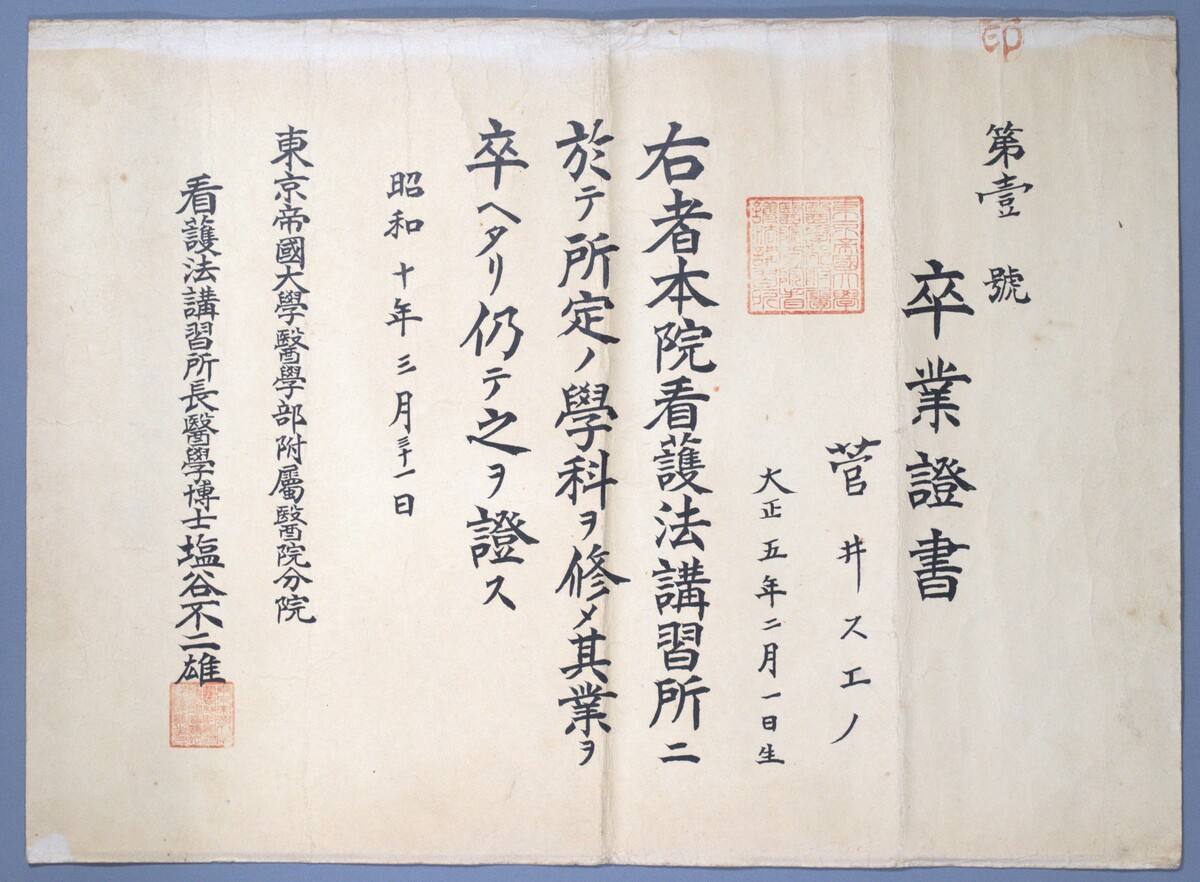 印
第壹號
卒業證書
菅井スエノ
大正五年二月一日生
右者本院看護法講習所ニ
於テ所定ノ學科ヲ修メ其業ヲ
卒ヘタリ仍テ之ヲ證ス
昭和十年三月三十一日
東京帝國大學醫學部附屬醫院分院
看護法講習所長醫學博士塩谷不二雄